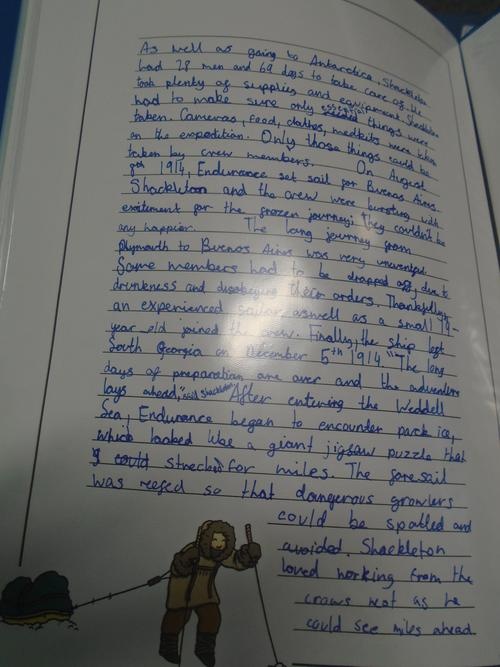 As well as going to Antarctica, Shackleton
had 28 men and 69 dogs to take care of. He
took plenty of supplies and equipment. Shackleton
had to make sure only essential things were
taken. Cameras, food, clothes, medkits were taken
on the expedition. Only those things could be
taken by crew members. On August
1914, Endurance set sail for Buenos Aires.
Shackleton and the crew were bursting with
excitement for the frozen journey; they couldn't be
any happier. The long journey from
plymouth to Buenos Aires was very uneventful.
Some members had to be dropped off due to
drunkenness and disobeying their orders. Thankfully,
an experienced sailor aswell as a small 19-
year old joined the crew. Finally, the ship left
South Georgia on December 5th 1914 "The long
days of preparation are over and the adventure
lays ahead," said Shackleton. After entering the Weddell
Sea, Endurance began to encounter pack ice,
which looked like a giant jigsaw puzzle that
streched for miles. The foresail
was reefed so that dangerous growlers
could be spotted and
avoided. Shackleton
loved working from the
craws nest as he
could see miles ahead.